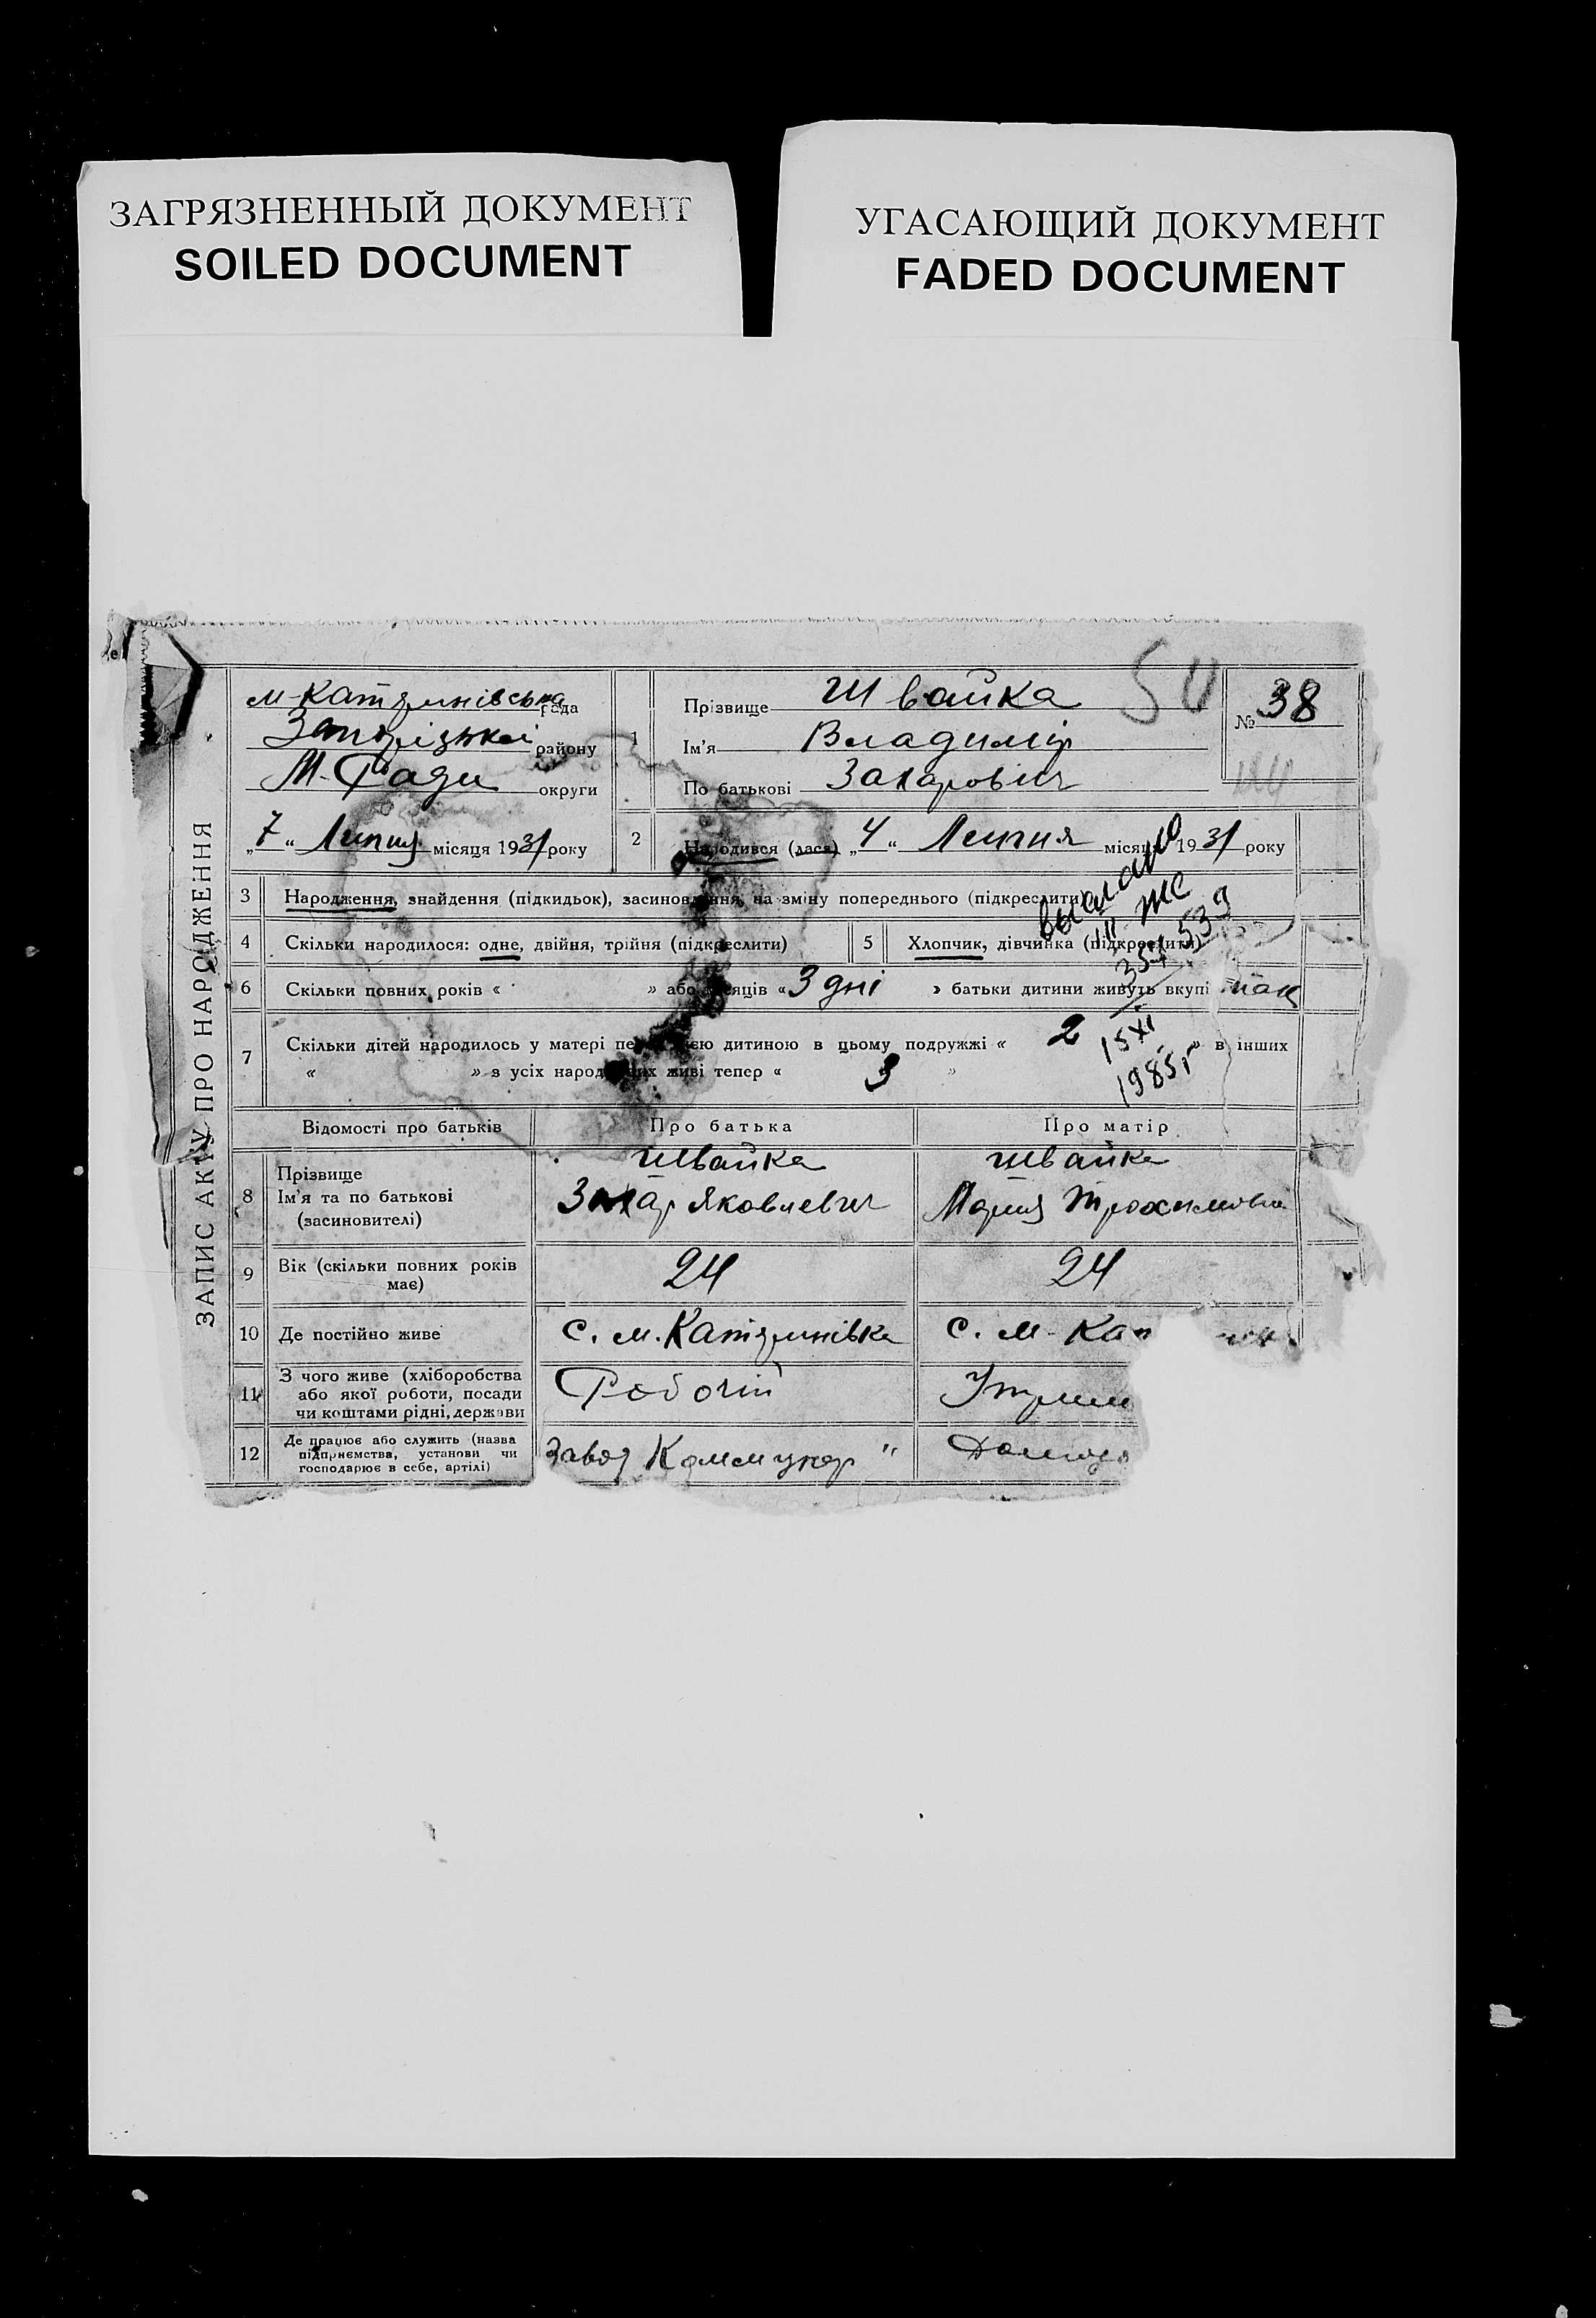 ЗАГРЯЗНЕННЫЙ ДОКУМЕНТ
SOILED DOCUMENT
УГАСАЮЩИЙ ДОКУМЕНТ
FADED DOCUMENT
ЗАПИС АКТУ ПРО НАРОДЖЕННЯ
рада
району
М. Ради округи
„7“ Липня місяця 1931 року
1
Прізвище Швайка
Ім'я Владимір
По батькові Захарович
№ 38
2 Народився (лася) „4“ Липня місяця 1931 року
3 Народження, знайдення (підкидьок), засиновлення, на зміну попереднього (підкреслити)
4 Скільки народилося: одне, двійня, трійня (підкреслити)
5 Хлопчик, дівчинка (підкреслити)
6 Скільки повних років « » або місяців «3 дні » батьки дитини живуть вкупі так
7 Скільки дітей народилось у матері перед цією дитиною в цьому подружжі « 2 » в інших
« » з усіх народжених живі тепер « 3 »
15 XI
1985 г
Відомості про батьків Про батька Про матір
8 Прізвище
Ім'я та по батькові
(засиновителі)
Швайка
Захар Яковлевич
Швайка
Мария Трохимовна
9 Вік (скільки повних років
має)
24
24
10 Де постійно живе
с. м. Катеринівка
с. м. Кат
11 З чого живе (хліборобства
або якої роботи, посади
чи коштами рідні, держави
Робочий
Утрим
12 Де працює або служить (назва
підприємства, установи чи
господарює в себе, артілі)
завод Коммунар"